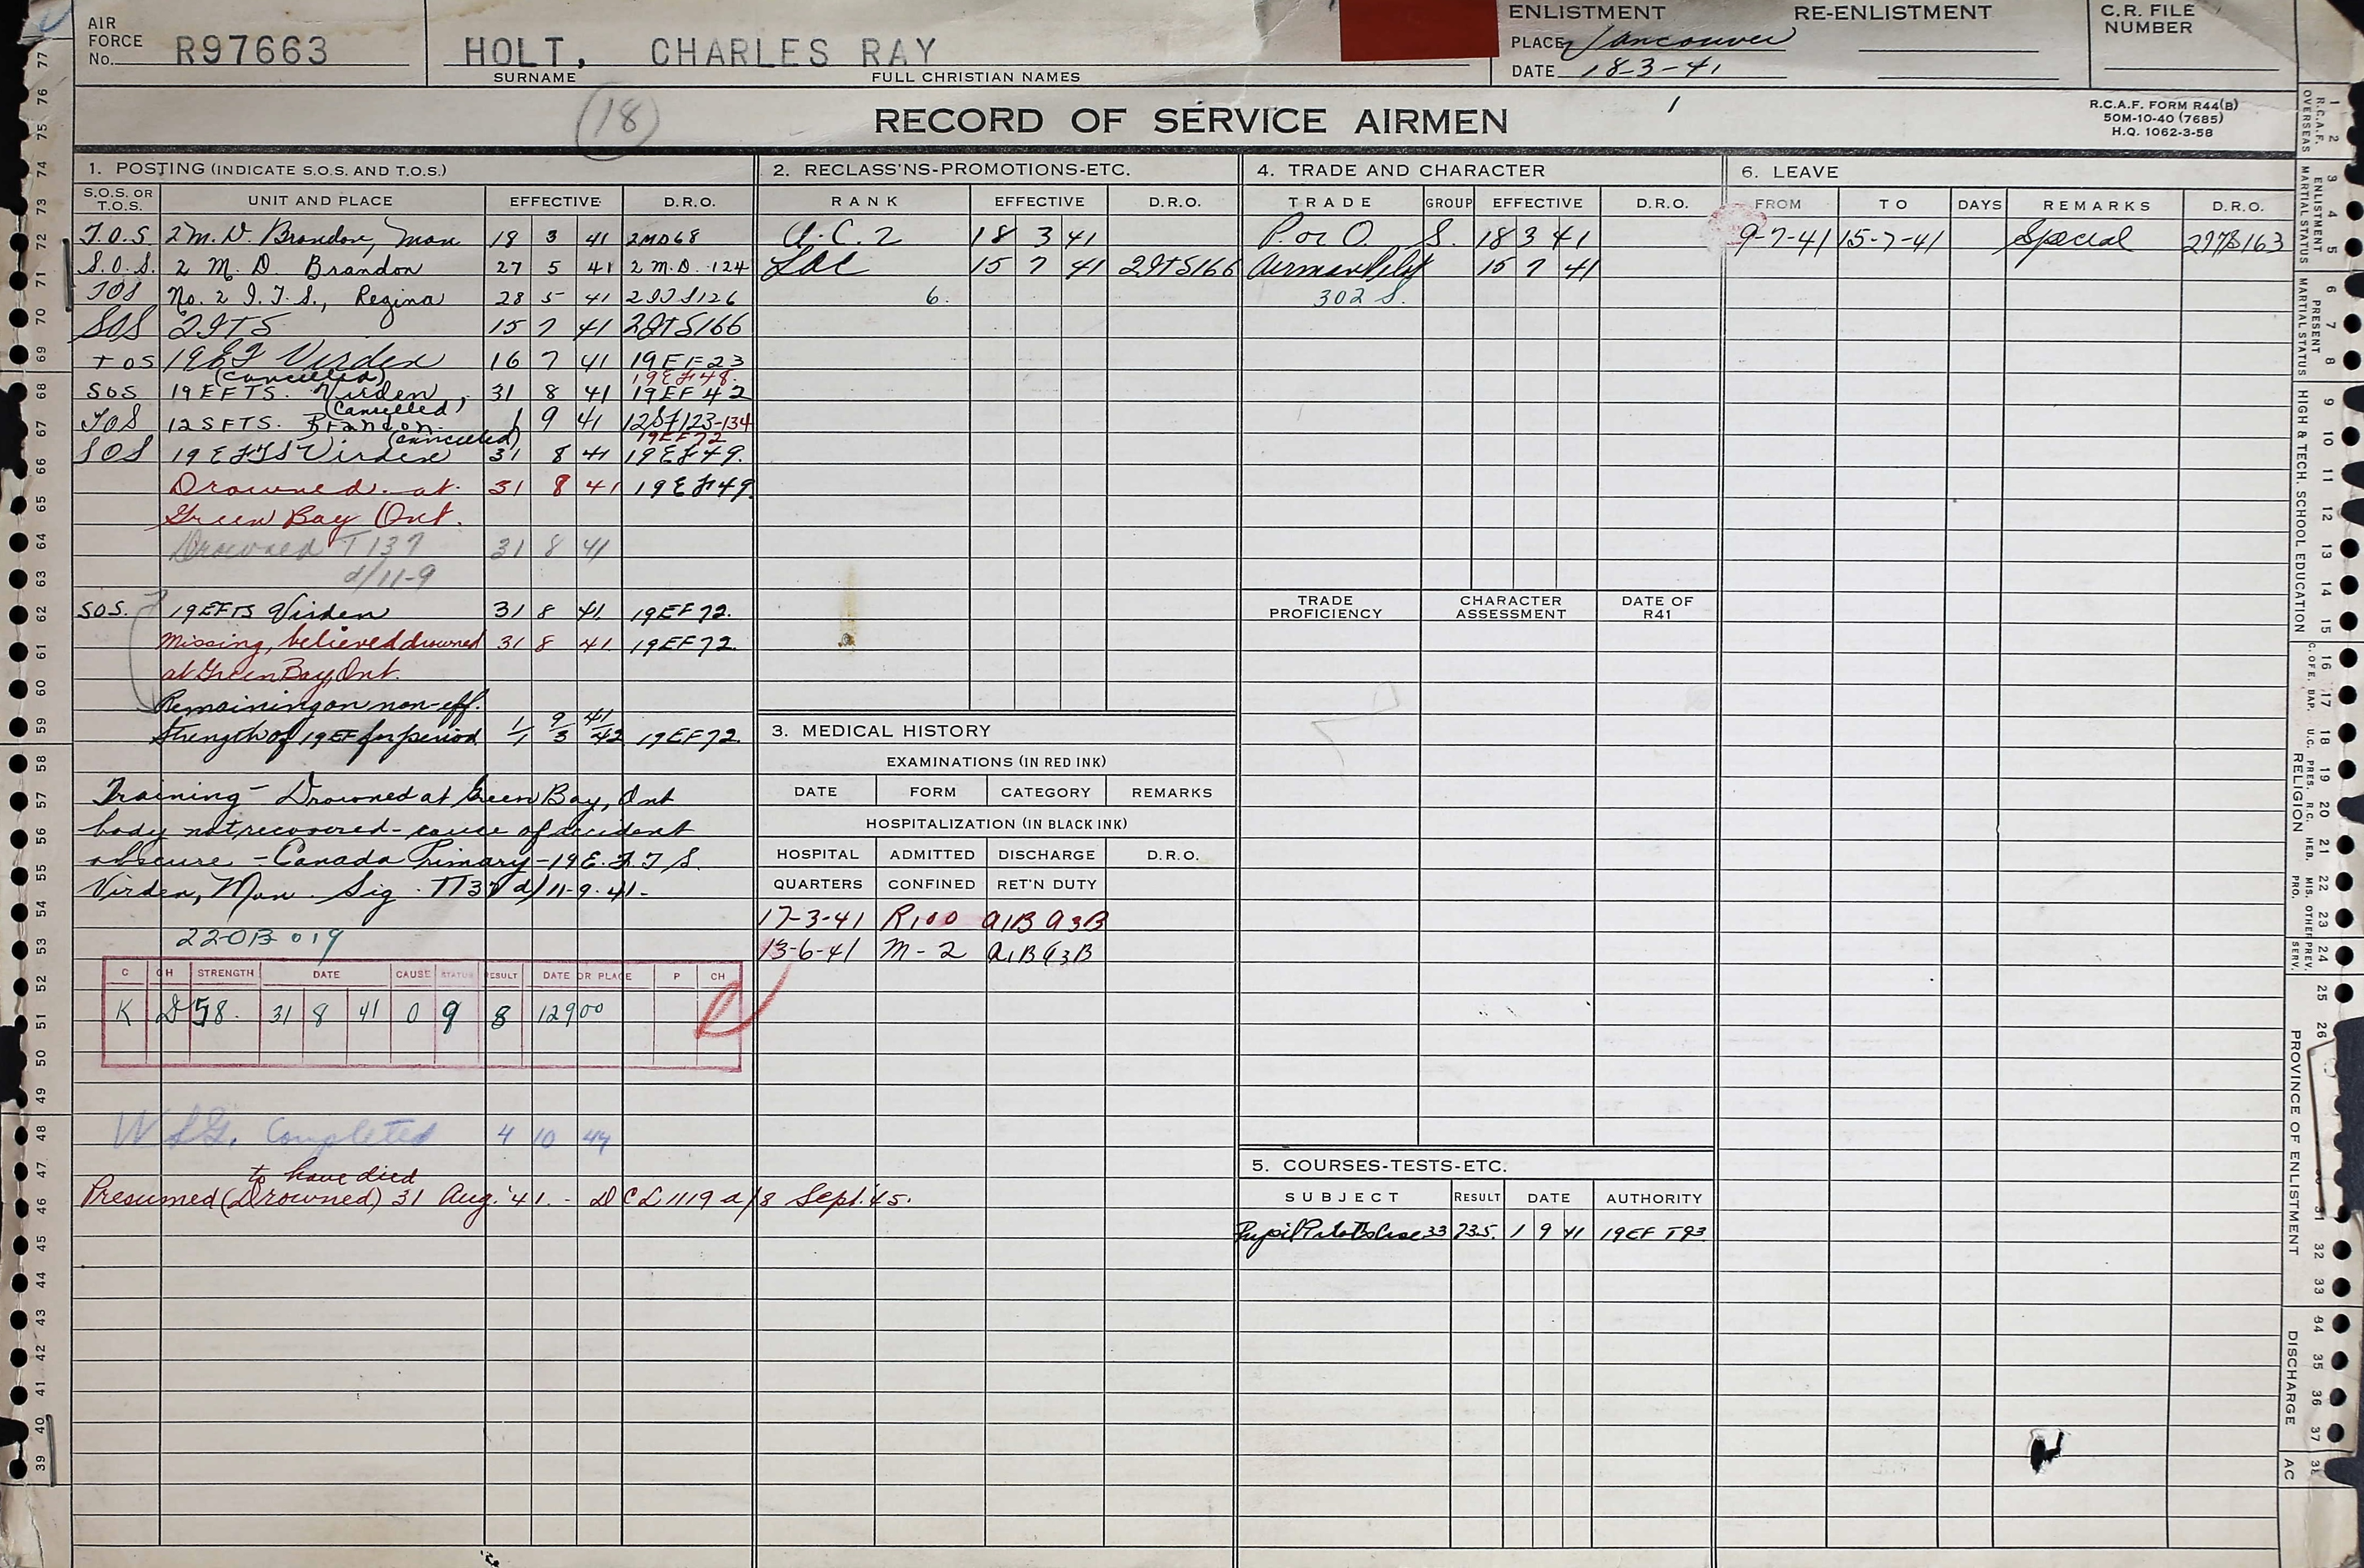 AIR FORCE No. R97663
HOLT, CHARLES RAY
SURNAME FULL CHRISTIAN NAMES
ENLISTMENT RE-ENLISTMENT
PLACE Vancouver
DATE 18-3-41
C.R. FILE NUMBER
(18)
RECORD OF SERVICE AIRMEN
R.C.A.F. FORM R44(B)
50M-10-40 (7685)
H.Q. 1062-3-58
1. POSTING (INDICATE S.O.S. AND T.O.S.)
S.O.S. OR T.O.S. UNIT AND PLACE EFFECTIVE D.R.O.
T.O.S 2 M.D. Brandon, Man 18 3 41 2MD68
S.O.S. 2 M. D. Brandon 27 5 41 2 M.D. 124
TOS No. 2 I.T.S., Regina 28 5 41 2ITS126
SOS 2ITS 15 7 41 2ITS166
TOS 19EF Virden 16 7 41 19EF23
(Cancelled) 19EF48.
SOS 19EFTS. Virden, 31 8 41 19EF42
(Cancelled)
TOS 12SFTS. Brandon. 1 9 41 12SF123-134
(cancelled) 19EF72
SOS 19EFTS Virden 31 8 41 19EF49.
Drowned at 31 8 41 19EF49
Green Bay Ont.
Drowned T137 31 8 41
d/11-9
SOS. 19EFTS Virden 31 8 41. 19EF72.
Missing, believed drowned 31 8 41. 19EF72.
at Green Bay, Ont.
Remaining on non-eff.
Strength of 19EF for period 1/1 9/3 41/42 19EF72.
Training - Drowned at Green Bay, Ont
body not recovered - cause of accident
obscure - Canada Primary - 19 E.F.T.S.
Virden, Man. Sig. T137 d/11-9-41-
22-OB 019
C CH STRENGTH DATE CAUSE STATUS RESULT DATE OR PLACE P CH
K D 58. 31 8 41 0 9 8 12900
W.S.G. Completed 4 10 44
to have died
Presumed (Drowned) 31 Aug. '41. - DCL 1119 d/8 Sept. '45.
2. RECLASS'NS-PROMOTIONS-ETC.
RANK EFFECTIVE D.R.O.
A.C.2 18 3 41
LAC 15 7 41 2ITS166
6.
3. MEDICAL HISTORY
EXAMINATIONS (IN RED INK)
DATE FORM CATEGORY REMARKS
HOSPITALIZATION (IN BLACK INK)
HOSPITAL ADMITTED DISCHARGE D.R.O.
QUARTERS CONFINED RET'N DUTY
17-3-41 R100 A1B A3B
13-6-41 M-2 A1B A3B
4. TRADE AND CHARACTER
TRADE GROUP EFFECTIVE D.R.O.
P. or O. S. 18 3 41
Airman Pilot 15 7 41
302 S.
TRADE PROFICIENCY CHARACTER ASSESSMENT DATE OF R41
5. COURSES-TESTS-ETC.
SUBJECT RESULT DATE AUTHORITY
Pupil Pilots Crse 33 735. 1 9 41 19EF T93
6. LEAVE
FROM TO DAYS REMARKS D.R.O.
9-7-41 15-7-41 Special 2ITS163
77
76
75
74
73
72
71
70
69
68
67
66
65
64
63
62
61
60
59
58
57
56
55
54
53
52
51
50
49
48
47
46
45
44
43
42
41
40
39
R.C.A.F. OVERSEAS 1 2
ENLISTMENT MARTIAL STATUS 3 4 5
PRESENT MARTIAL STATUS 6 7 8
HIGH & TECH. SCHOOL EDUCATION 9 10 11 12 13 14 15
C. OF E. BAP. U.C. PRES. R.C. HEB. MIS. OTHER PRO. 16 17 18 19 20 21 22 23
RELIGION
PREV. SERV. 24
PROVINCE OF ENLISTMENT 25 26 31 32 33
DISCHARGE 34 35 36 37
AC 38